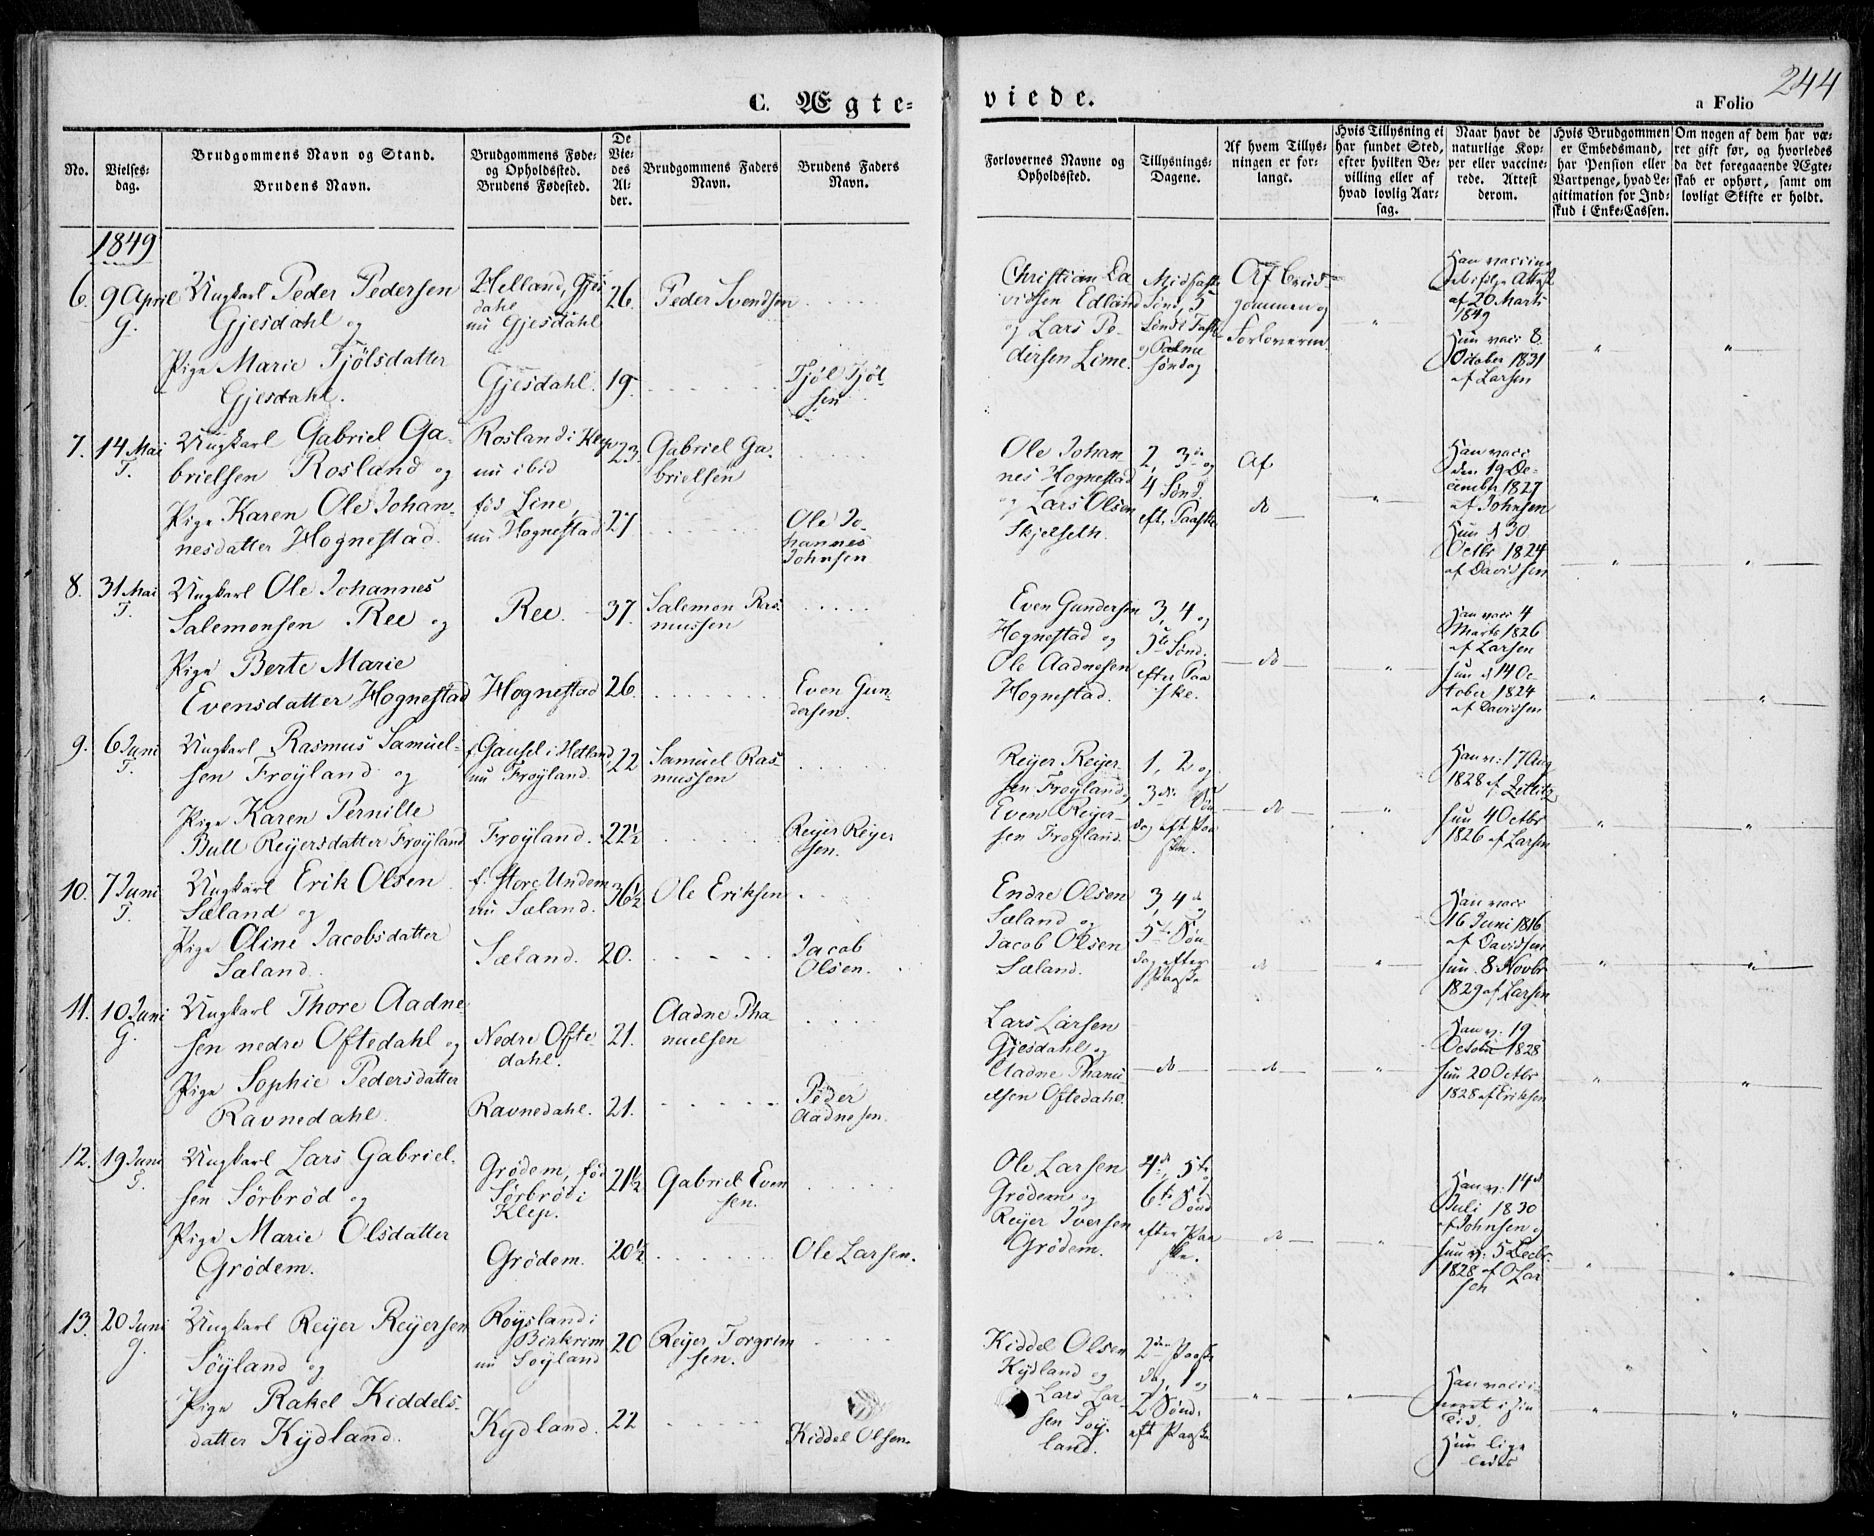 C. Ægte-
viede.
a Folio 244
No.
Vielses-
dag.
Brudgommens Navn og Stand.
Brudens Navn.
Brudgommens Føde-
og Opholdssted.
Brudens Fødested.
De
Vie-
des
Al-
der.
Brudgommens Faders
Navn.
Brudens Faders
Navn.
Forlovernes Navne og
Opholdssted.
Tillysnings-
Dagene.
Af hvem Tillys-
ningen er for-
langt.
Hvis Tillysning ei
har fundet Sted,
efter hvilken Be-
villing eller af
hvad lovlig Aar-
sag.
Naar havt de
naturlige Kop-
per eller vaccine-
rede. Attest
derom.
Hvis Brudgommen
er Embedsmand,
har Pension eller
Vartpenge, hvad Le-
gitimation for Ind-
skud i Enke-Cassen.
Om nogen af dem har væ-
ret gift før, og hvorledes
da det foregaaende Ægte-
skab er ophørt, samt om
lovligt Skifte er holdt.
1849
6.
9 April
G.
Ungkarl Peder Pedersen
Gjesdahl og
Pige Marie Tjølsdatter
Gjesdahl.
Helland, Gjes
dahl
nu Gjesdahl
Gjesdahl.
26.
19.
Peder Svendsen
Tjøl Tjøl-
sen
Christian Da
vidsen Edland
og Lars Pe-
dersen Lime.
Midfaste
Sønd, 5
Sønd i Faste
og Palme
søndag
Af Brud-
gommen og
Forloverne.
Han vaccine
ret ifølge Attest
af 20 Marts
1849
Hun vacc 8.
October 1831
af Larsen
7.
14 Mai
T.
Ungkarl Gabriel Ga-
brielsen Rosland og
Pige Karen Ole Johan-
nesdatter Hognestad.
Rosland i Klep
nu ibid
fød Line,
nu Hognestad
23.
27
Gabriel Ga-
brielsen
Ole Jo-
hannes
Johnsen
Ole Johan-
nes Hognestad
og Lars Olsen
Skjelseth.
2, 3die og
4 Sønd.
eft. Paaske
Af
do
Han vacc
den 19 De-
cember 1827
af Johnsen
Hun d 30
Octbr 1824
af Davidsen
8.
31 Mai
T.
Ungkarl Ole Johannes
Salemonsen Ree og
Pige Berte Marie
Evensdatter Hognestad
Ree.
Hognestad
37.
26.
Salemon Ras-
mussen
Even Gun-
dersen.
Even Gundersen
Hognestad og
Ole Aadnesen
Hognestad.
3, 4 og
5te Sønd.
efter Paa
ske.
do
Han vacc 4
Marts 1826
af Larsen
hun d 14 Oc
tober 1824
af Davidsen
9.
6 Juni
T.
Ungkarl Rasmus Samuel-
sen Frøyland og
Pige Karen Pernille
Bull Reyersdatter Frøyland
f. Gausel i Hetland
nu Frøyland.
Frøyland.
22
22½
Samuel Ras-
mussen
Reyer Reyer
sen.
Reyer Reyer-
sen Frøyland og
Even Reyer-
sen Frøyland.
1, 2 og
3die Søn
dag eft Paa
ske.
do
Han v: 17 Aug
1828 af Zetlitz
hun 4 Octbr
1826 af Larsen
10.
7 Juni
T.
Ungkarl Erik Olsen
Sæland og
Pige Oline Jacobsdatter
Sæland.
f. Store Undem
nu Sæland.
Sæland.
36½
20.
Ole Eriksen
Jacob
Olsen.
Endre Olsen
Sæland og
Jacob Olsen
Sæland.
3, 4de
5te Søn-
dag efter
Paaske
do
Han vacc
16 Juni 1816
af Davidsen
hun 8 Novbr
1829 af Larsen
11.
10 Juni
G.
Ungkarl Thore Aadne-
sen nedre Oftedahl og
Pige Sophie Pedersdatter
Ravnedahl.
Nedre Ofte-
dahl.
Ravnedahl.
21.
21.
Aadne Tha
nuelsen
Peder
Aadnesen.
Lars Larsen
Gjesdahl og
Aadne Thanu-
elsen Oftedahl.
do
do
Han v: 19
October 1828
hun 20 Octbr
1828 af Eriksen
12.
19 Juni
T.
Ungkarl Lars Gabriel-
sen Sørbrød og
Pige Marie Olsdatter
Grødem.
Grødem, fød
Sørbrød i
Klep.
Grødem.
21½
20½
Gabriel Even
sen.
Ole Larsen.
Ole Larsen
Grødem og
Reyer Iversen
Grødem.
4de, 5te
6te Sønd
efter Paa
ske.
do
Han v: 14d
Juli 1830
af Johnsen og
hun v: 5 Decbr.
1828 af O Lar
sen
13.
20 Juni
G.
Ungkarl Reyer Reyersen
Søyland og
Pige Rakel Kiddels-
datter Kydland.
Røysland i
Birkrim
nu Søyland
Kydland.
20
22
Reyer Torgrim
sen.
Kiddel Olsen.
Kiddel Olsen
Kydland og
Lars Lar-
sen Søy-
land.
2den Paaske
dag, 1 og
2 Sønd.
eft Paaske
Han vacci-
neret i sin
Tid.
Hun lige
ledes